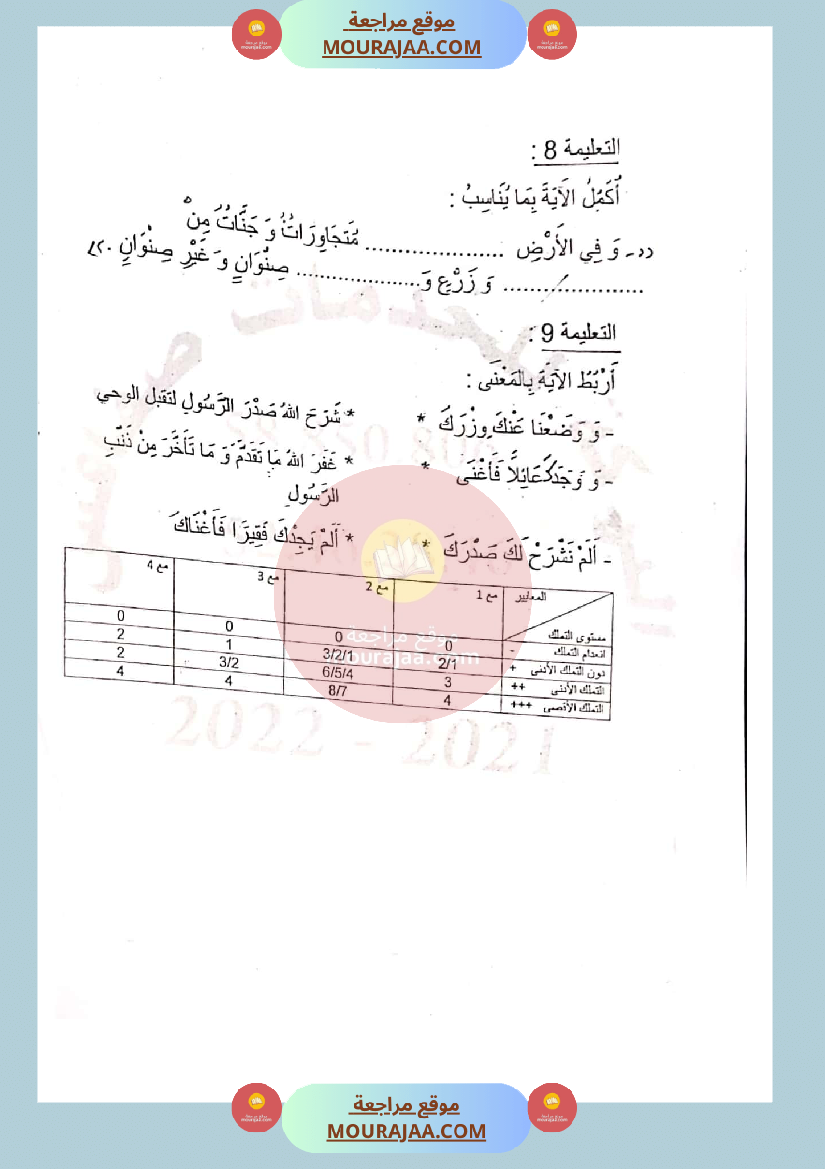 موقع مراجعة
MOURAJAA.COM
التعليمة 8 :
أُكَمِّلُ الآيَةَ بِمَا يُنَاسِبُ :
وَ فِي الأَرْضِ .................... مُتَجَاوِرَاتٌ وَ جَنَّاتٌ مِنْ
.................... وَ زَرْعٍ وَ.................... صِنْوَانٍ وَ غَيْرِ صِنْوَانٍ
التعليمة 9 :
أَرْبُطُ الآيَةَ بِالمَعْنَى :
- وَ وَضَعْنَا عَنْكَ وِزْرَكَ * * شَرَحَ اللهُ صَدْرَ الرَّسُولِ لتقبل الوحي
- وَ وَجَدَكَ عَائِلاً فَأَغْنَى * * غَفَرَ اللهُ مَا تَقَدَّمَ وَ مَا تَأَخَّرَ مِنْ ذَنْبِ
الرَّسُولِ
- أَلَمْ نَشْرَحْ لَكَ صَدْرَكَ * * أَلَمْ يَجِدْكَ فَقِيرًا فَأَغْنَاكَ
المعايير مع 1 مع 2 مع 3 مع 4
مستوى التملك
انعدام التملك - 0 0 0 0
دون التملك الأدنى + 2/1 3/2/1 1 2
التملك الأدنى ++ 3 6/5/4 3/2 2
التملك الأقصى +++ 4 8/7 4 4
موقع مراجعة
mourajaa.com
2022 - 2021
موقع مراجعة
MOURAJAA.COM